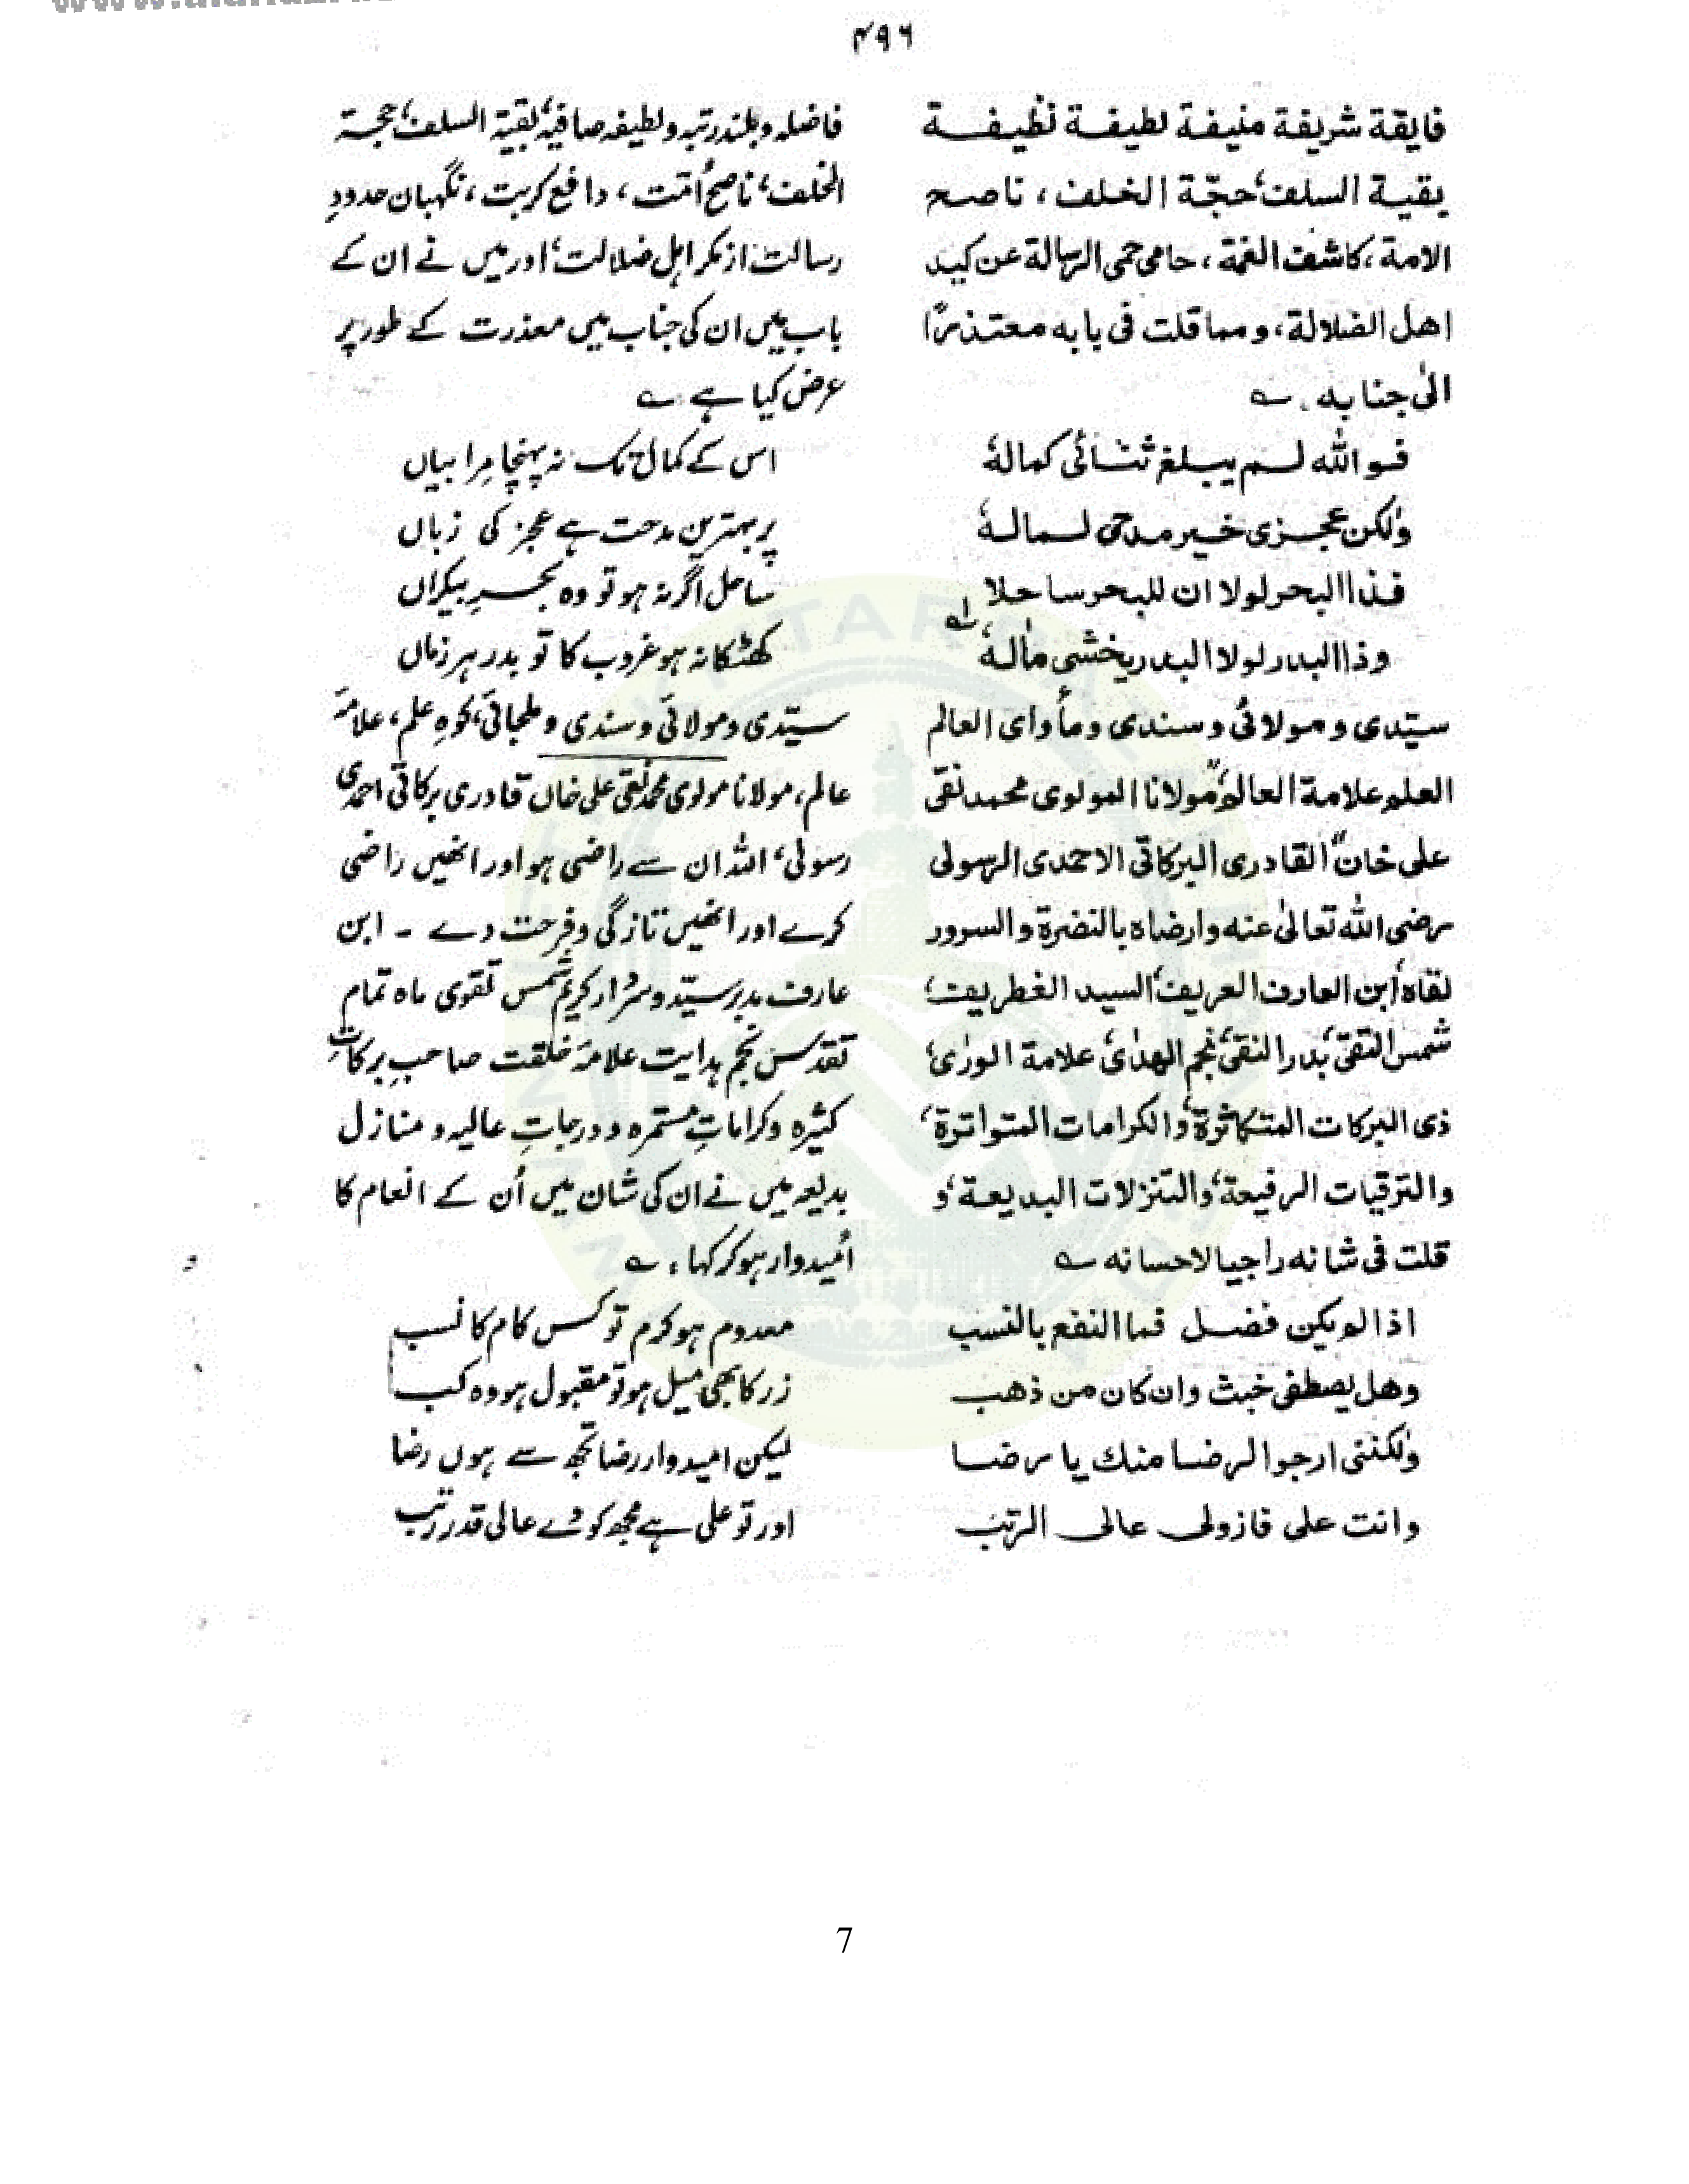 ۴۹۶
فایقة شریفة منیفة لطیفة نظیفة
بقیة السلف، حجّة الخلف، ناصح
الامة، کاشف الغمة، حامی حمی الرسالة عن کید
اهل الضلالة، ومما قلت فی بابه معتذرًا
الٰی جنابه ؎
فو اللّٰه لم یبلغ ثنائی کمالهٗ
ولٰکن عجزی خیر مدحی لمالهٗ
فذا البحر لولا ان للبحر ساحلا
وذا البدر لولا البدر یخشی ماٰلهٗ
سیّدی ومولائی وسندی ومأوای العالم
العلم علامة العالم، مولانا المولوی محمد نقی
علی خان القادری البرکاتی الاحمدی الرسولی
رضی اللّٰه تعالٰی عنه وارضاه بالنضرة والسرور
لقاه، ابن العارف العریف، السید الغطریف،
شمس التقی، بدر النقی، نجم الهدٰی، علامة الورٰی،
ذی البرکات المتکاثرة، والکرامات المتواترة،
والترقیات الرفیعة، والتنزلات البدیعة، و
قلت فی شانه راجیا لاحسانه ؎
اذا لم یکن فضل فما النفع بالنسب
وهل یصطفی خبث وان کان من ذهب
ولٰکننی ارجو الرضا منك یا رضا
وانت علی فازولی عالی الرتب
فاضلہ و بلند رتبہ و لطیفہ صافیہ، بقیۃ السلف، حجۃ
الخلف، ناصحِ اُمّت، دافع کربت، نگہبان حدودِ
رسالت از مکر اہلِ ضلالت، اور میں نے ان کے
باب میں ان کی جناب میں معذرت کے طور پر
عرض کیا ہے ؎
اس کے کمال تک نہ پہنچا مِرا بیاں
پر بہترین مدحت ہے عجز کی زباں
ساحل اگر نہ ہو تو وہ بحرِ بیکراں
کھٹکا نہ ہو غروب کا تو بدر ہر زماں
سیّدی و مولائی و سندی و ملجائی، کوہِ علم، علامۂ
عالم، مولانا مولوی محمد نقی علی خاں قادری برکاتی احمدی
رسولی، اللّٰہ ان سے راضی ہو اور انھیں راضی
کرے اور انھیں تازگی و فرحت دے ۔ ابن
عارف بدر سیّد و سردار کریم شمس تقوی ماہ تمام
تقدس نجم ہدایت علامۂ خلقت صاحبِ برکاتِ
کثیرہ و کراماتِ مستمرہ و درجاتِ عالیہ و منازل
بدلیعہ میں نے ان کی شان میں اُن کے انعام کا
اُمیدوار ہو کر کہا، ؎
معدوم ہو کرم تو کس کام کا نسب
زر کا بھی میل ہو تو مقبول ہو وہ کب
لیکن امیدوار رضا تجھ سے ہوں رضا
اور تو علی ہے مجھ کو دے عالی قدر رتب
7